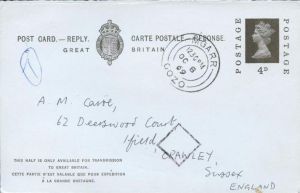 POST CARD.—REPLY. CARTE POSTALE—RÉPONSE.
GREAT BRITAIN
MGARR
OC 8
69
GOZO
POSTAGE
POSTAGE
4D
A M Carre,
62 Deerswood Court
Ifield,
CRAWLEY,
Sussex
ENGLAND
THIS HALF IS ONLY AVAILABLE FOR TRANSMISSION
TO GREAT BRITAIN.
CETTE PARTIE N'EST VALABLE QUE POUR EXPÉDITION
À LA GRANDE BRETAGNE.